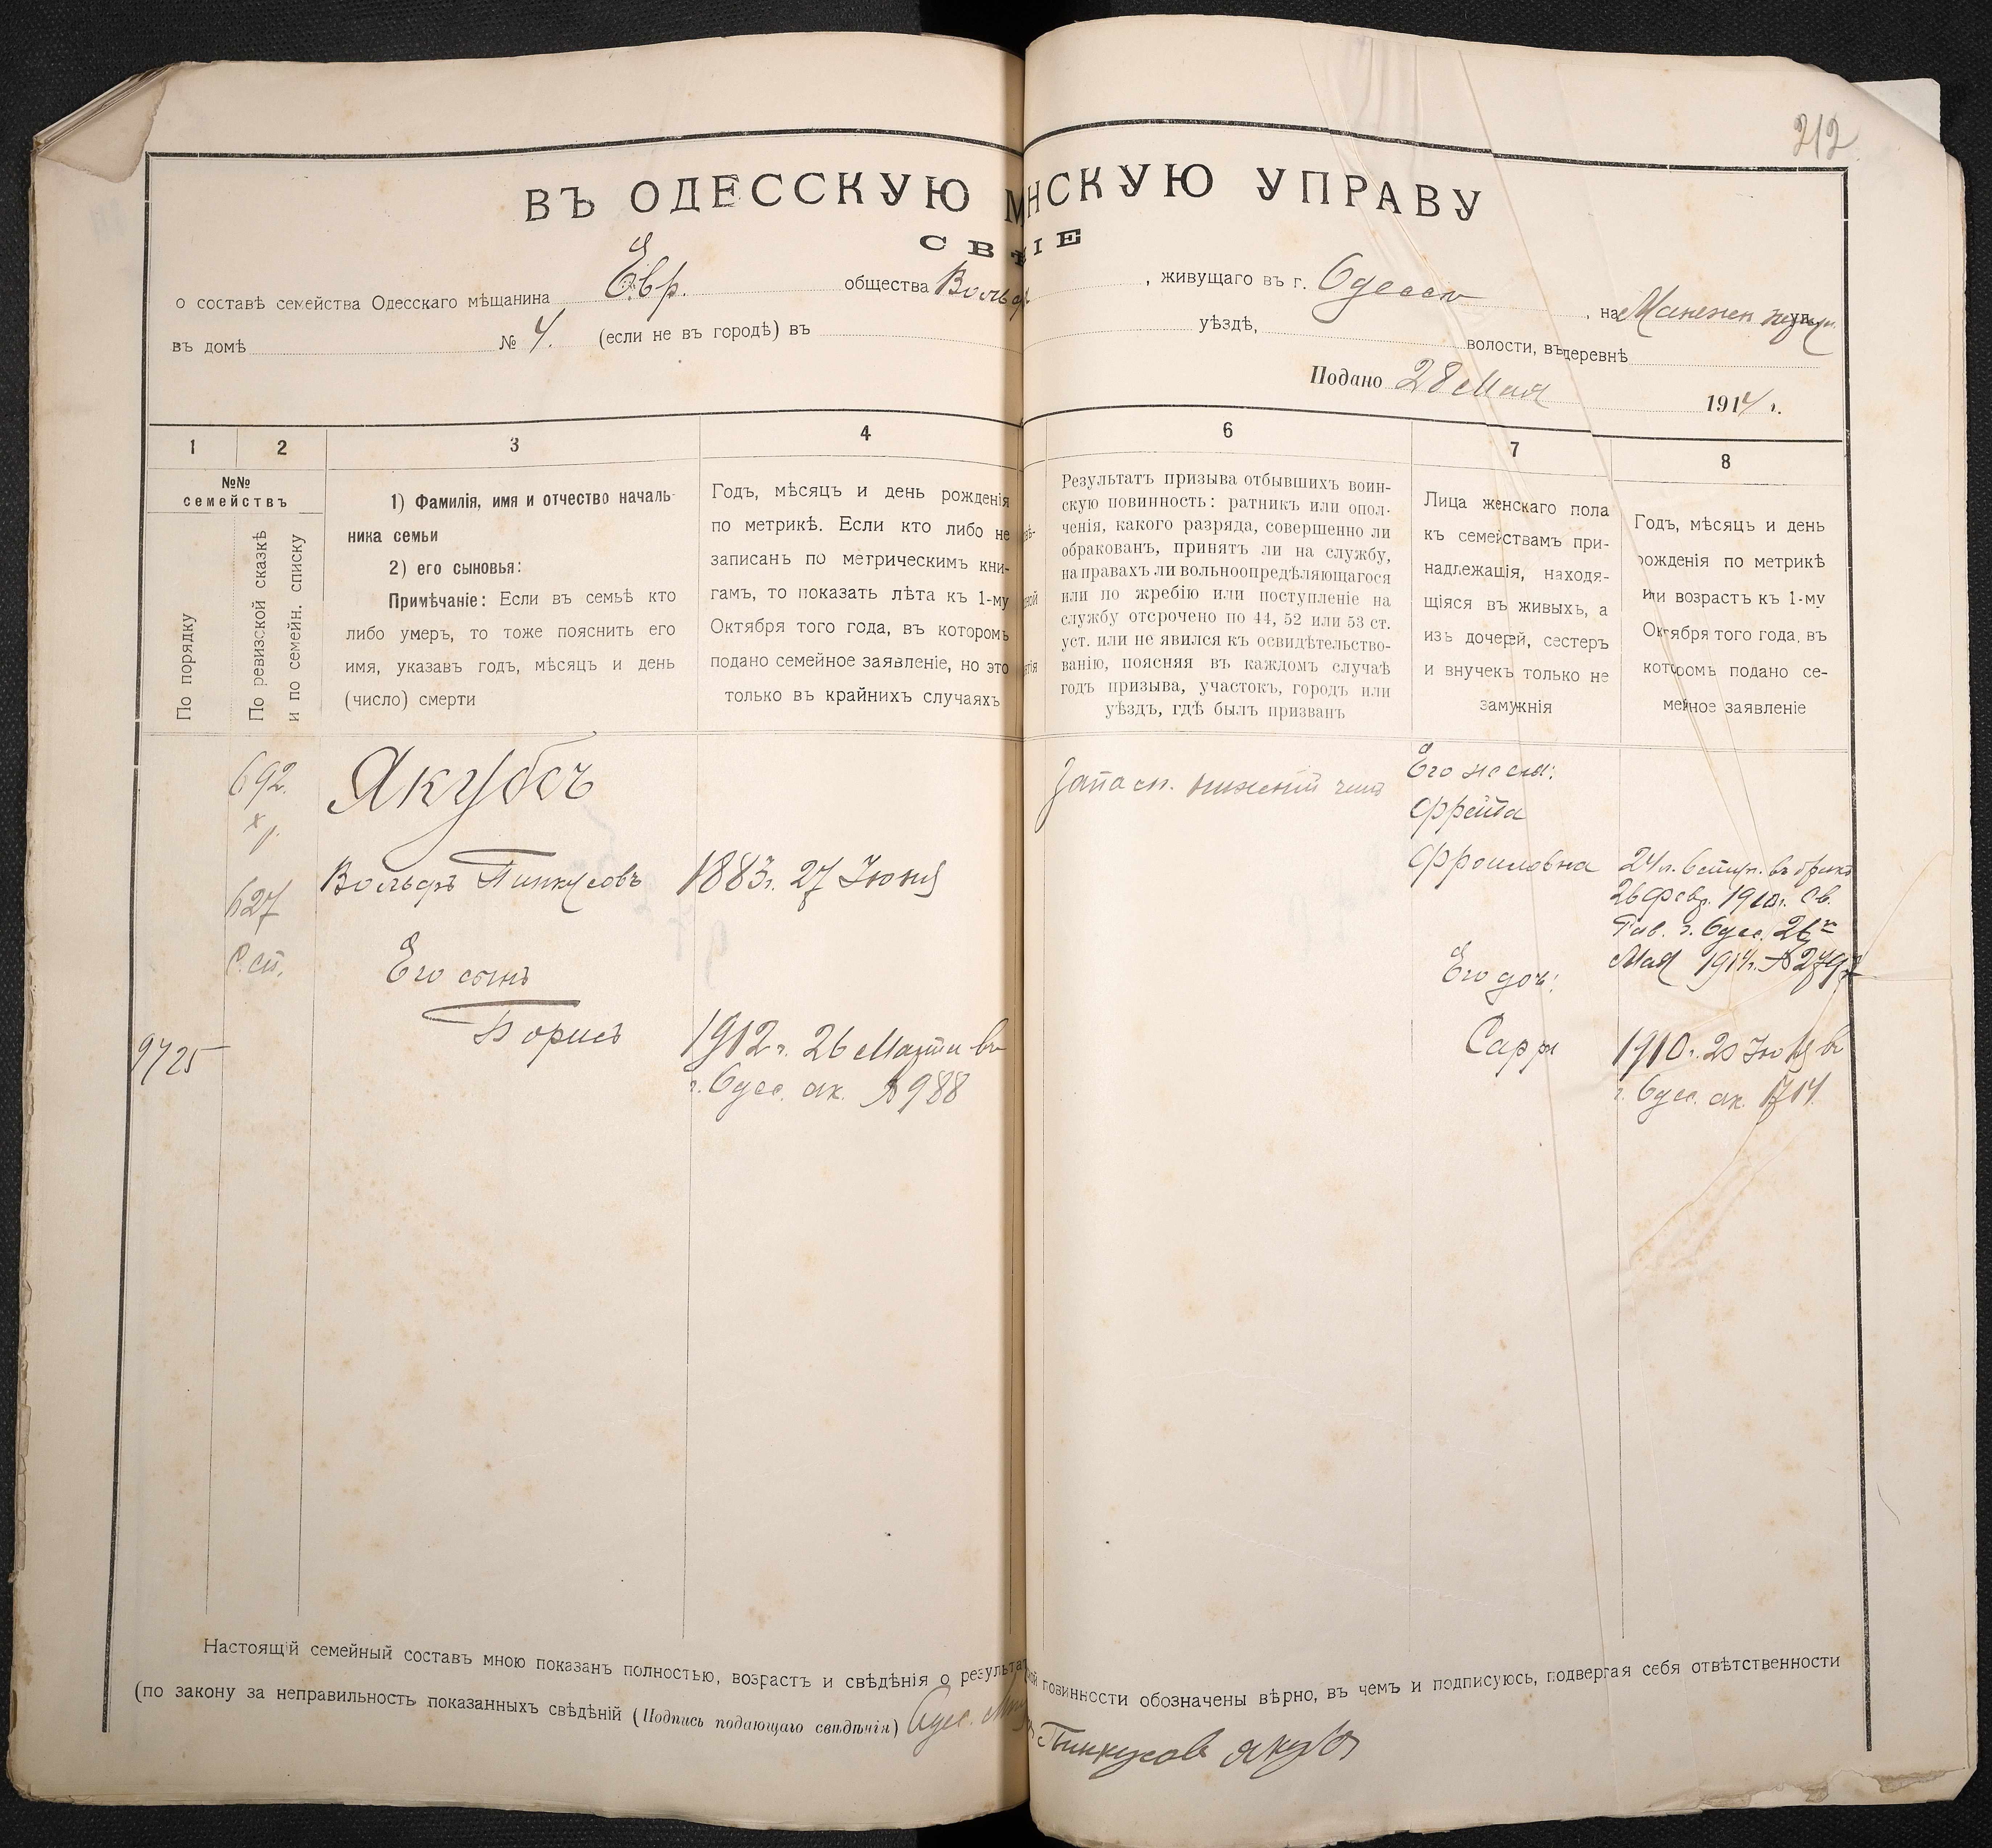 212
ВЪ ОДЕССКУЮ М НСКУЮ УПРАВУ
СВѢ ІЕ
о составѣ семейства Одесскаго мѣщанина Евр. общества Вольф , живущаго въ г. Одессѣ , на Манежн ул.
въ домѣ № 4. (если не въ городѣ) въ уѣздѣ, волости, въ деревнѣ
Подано 28 Мая 1914 г.
1 2 3 4 6 7 8
№№
семействъ
По порядку
По ревизской сказкѣ
и по семейн. списку
1) Фамилія, имя и отчество началь-
ника семьи
2) его сыновья:
Примѣчаніе: Если въ семьѣ кто
либо умеръ, то тоже пояснить его
имя, указавъ годъ, мѣсяцъ и день
(число) смерти
Годъ, мѣсяцъ и день рожденія
по метрикѣ. Если кто либо не
записанъ по метрическимъ кни-
гамъ, то показать лѣта къ 1-му
Октября того года, въ которомъ
подано семейное заявленіе, но это
только въ крайнихъ случаяхъ
Результатъ призыва отбывшихъ воин-
скую повинность: ратникъ или опол-
ченія, какого разряда, совершенно ли
обракованъ, принятъ ли на службу,
на правахъ ли вольноопредѣляющагося
или по жребію или поступленіе на
службу отсрочено по 44, 52 или 53 ст.
уст. или не явился къ освидѣтельство-
ванію, поясняя въ каждомъ случаѣ
годъ призыва, участокъ, городъ или
уѣздъ, гдѣ былъ призванъ
Лица женскаго пола
къ семействамъ при-
надлежащія, находя-
щіяся въ живыхъ, а
изъ дочерей, сестеръ
и внучекъ только не
замужнія
Годъ, мѣсяцъ и день
рожденія по метрикѣ
или возрастъ къ 1-му
Октября того года, въ
которомъ подано се-
мейное заявленіе
692.
627
С. сп.
9725
Якубсъ
Вольфъ Пинкусовъ 1883 г. 27 Іюня
Его сынъ
Борисъ 1912 г. 26 Марта въ
г. Одес. ак. № 988
Запасн. нижній чинъ
Его жена:
Фрейда
Фроимовна 24 л. вступ. въ бракъ
26 Февр. 1910 г. Св.
Рав. г. Одес. 26
Мая 1914 г. №
Его доч:
Сарра 1910 г. 20 въ
г. Одес. ак.
Настоящій семейный составъ мною показанъ полностью, возрастъ и свѣдѣнія о результат ой повинности обозначены вѣрно, въ чемъ и подписуюсь, подвергая себя отвѣтственности
(по закону за неправильность показанныхъ свѣдѣній (Подпись подающаго свѣдѣнія) Одес. Пинкусовъ